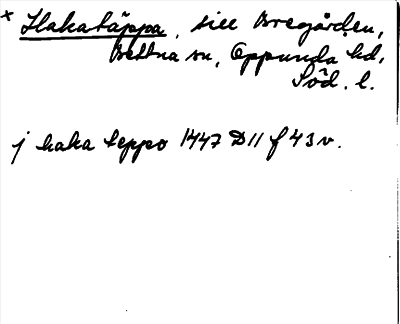 × Hakatäppa, till Bregården,
Bettna sn, Oppunda hd,
Söd. l.
j haka teppo 1447 D 11 f 43 v.